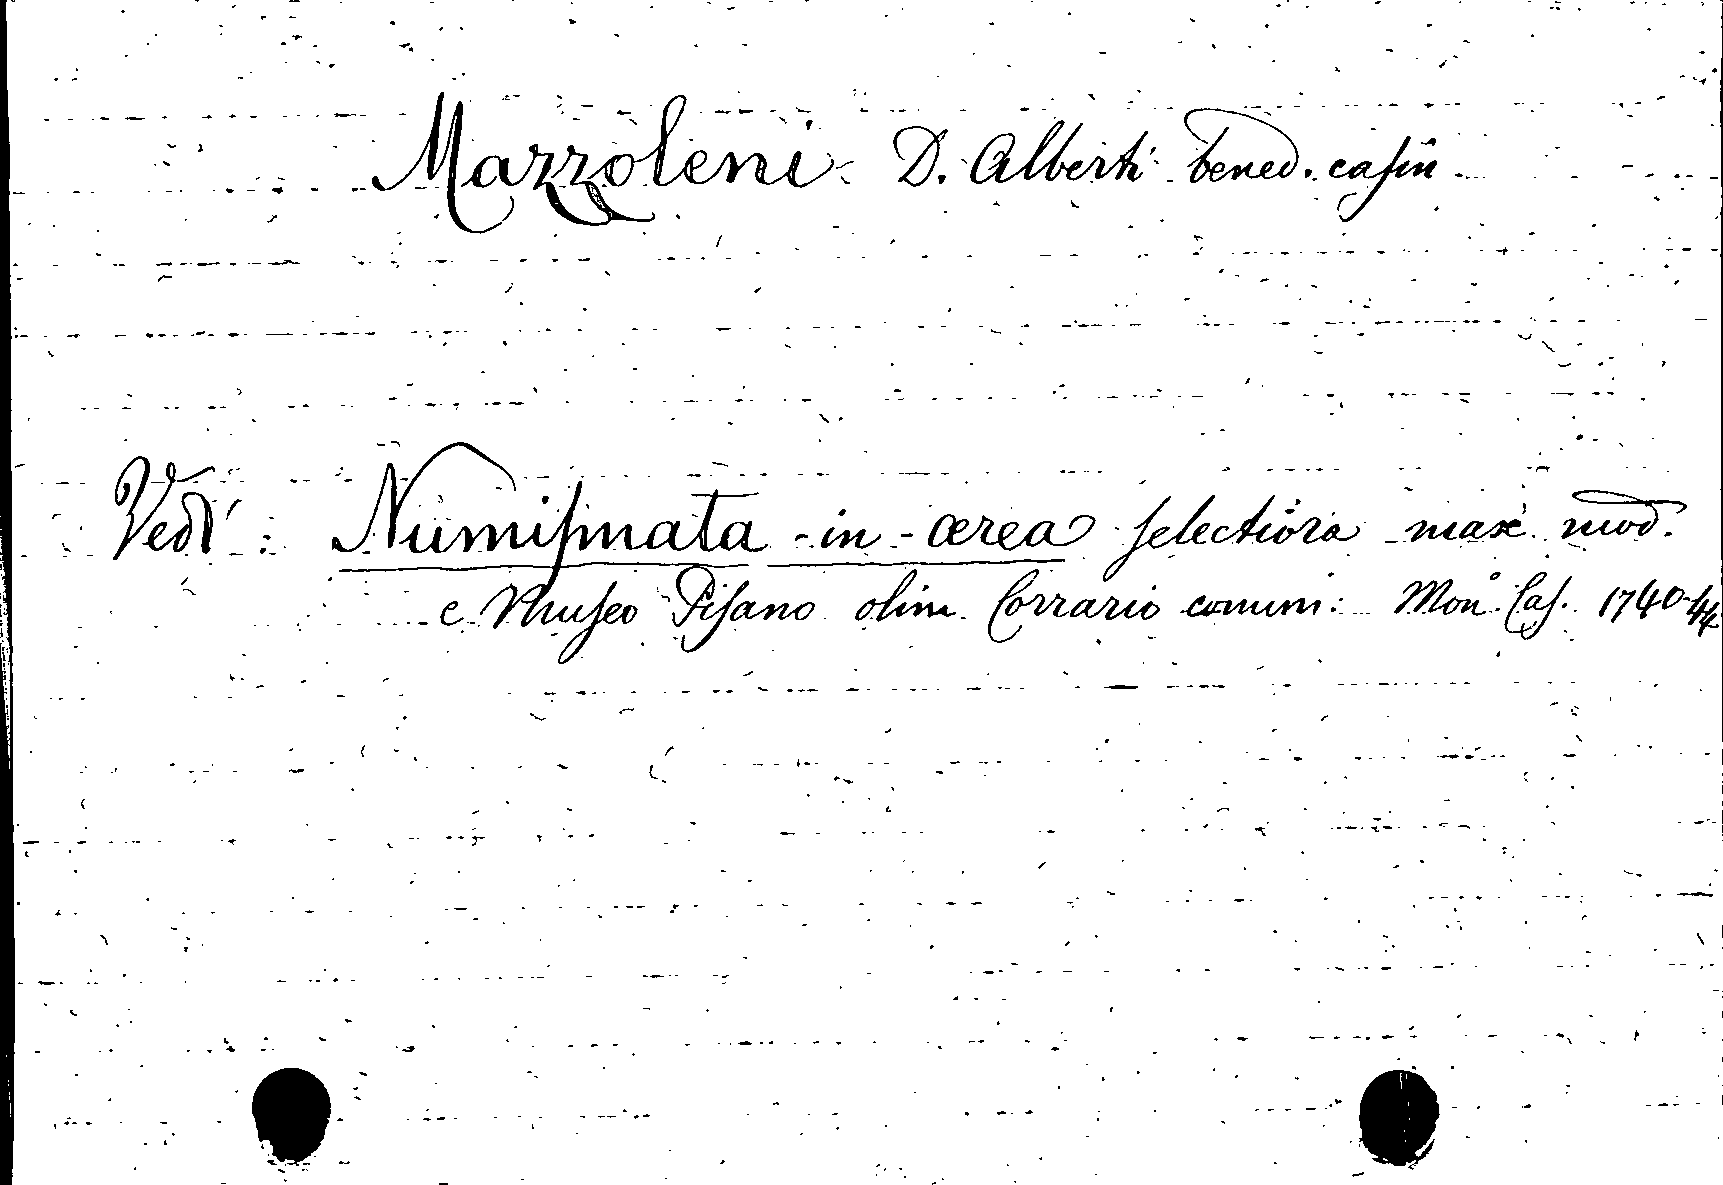 Mazzoleni D. Alberti bened. casin
Vedi: Numismata in ærea selectiora max mod.
e Museo Pisano olim Corrario comm: Mon. Cas. 1740-44